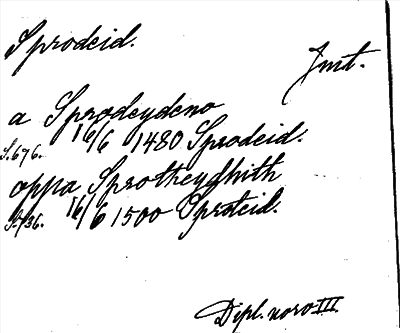 Sprodeid.
Jmt.
a Sprodeydeno
S. 676. 16/6 1480 Sprodeid.
oppa Sprotheydhith
S. 736. 16/6 1500 Sproteid.
Dipl. norv III